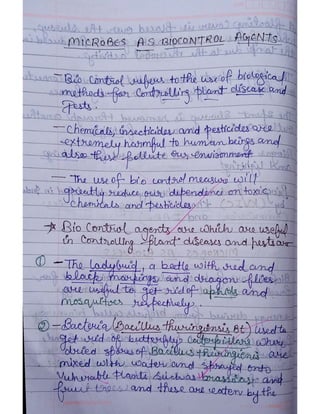 MICROBES AS BIOCONTROL AGENTS
- Bio control refers to the use of biological
methods for controlling plant disease and
pests.
- Chemicals, insecticides and pesticides are
extremely harmful to human beings and
also these pollute our environment
- The use of bio control measure will
greatly reduce our dependence on toxic
chemicals and pesticides
* Bio control agents are which are useful
in controlling plant diseases and pests are
① - The Ladybird, a beetle with red and
black markings and dragon flies
are useful to get rid of aphids and
mosquitoes respectively.
② - Bacteria (Bacillus thuringiensis Bt) used to
get rid of butterfly caterpillars where
dried spores of Bacillus thuringiensis are
mixed with water and sprayed onto
vulnerable plants such as brassicas and
fruit trees and these are eaten by the